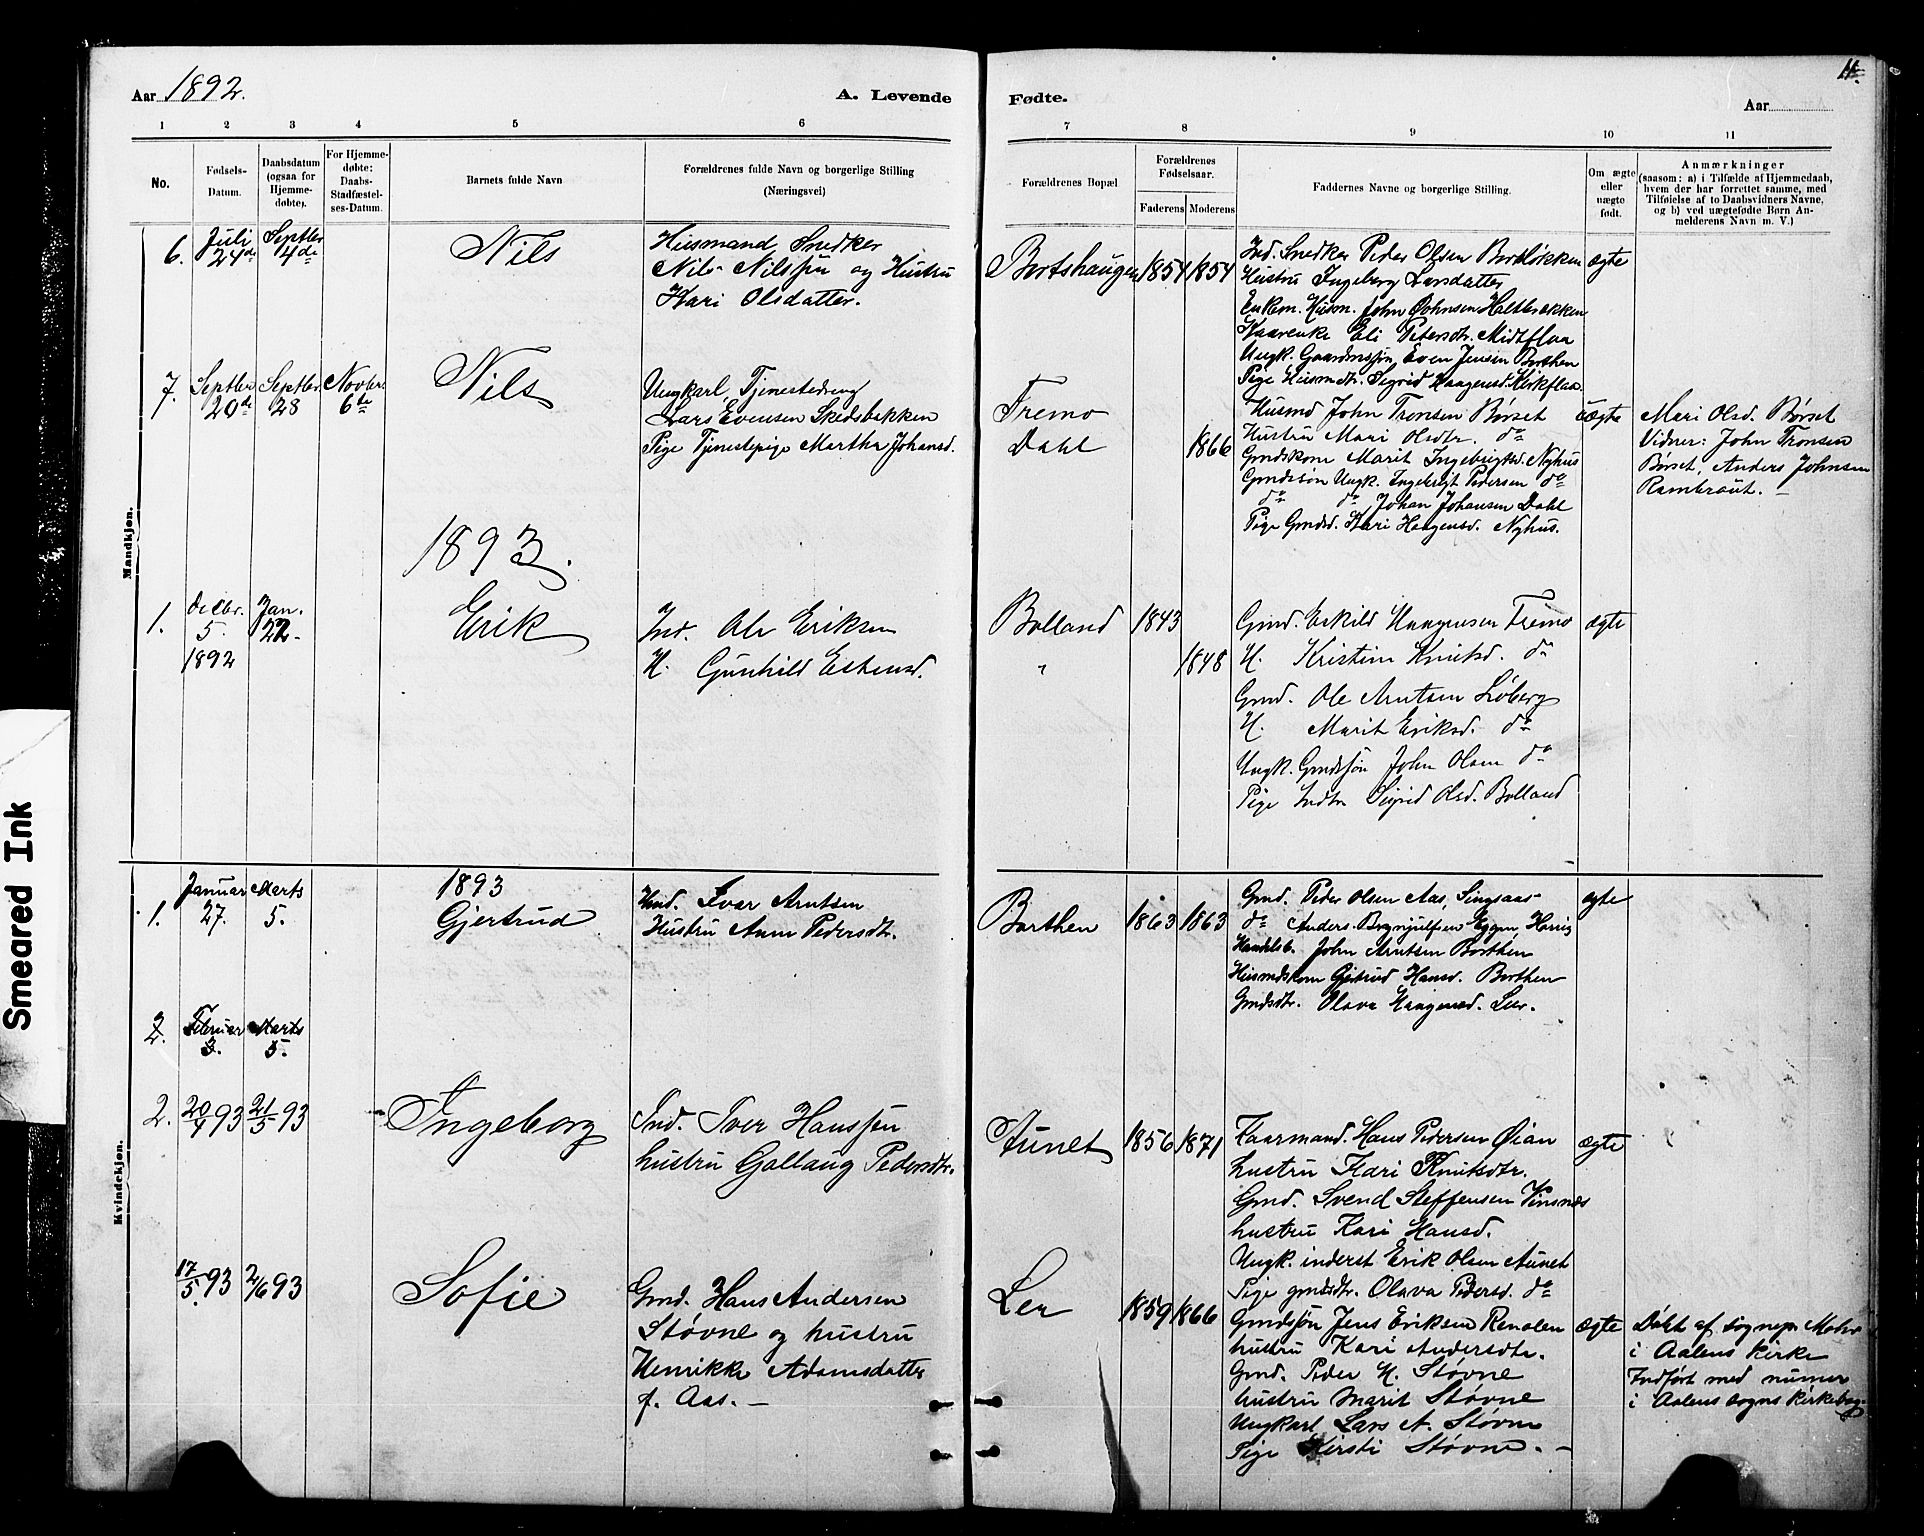 11.
Aar 1892.
A. Levende
Fødte.
Aar
1 2 3 4 5 6
7 8 9 10 11
No.
Fødsels-
Datum.
Daabsdatum
(ogsaa for
Hjemme-
døbte).
For Hjemme-
døbte:
Daabs-
Stadfæstel-
ses-Datum.
Barnets fulde Navn
Forældrenes fulde Navn og borgerlige Stilling
(Næringsvei)
Forældrenes Bopæl
Forældrenes
Fødselsaar.
Faderens Moderens
Faddernes Navne og borgerlige Stilling.
Om ægte
eller
uægte
født.
Anmærkninger
(saasom: a) i Tilfælde af Hjemmedaab,
hvem der har forrettet samme, med
Tilføielse af to Daabsvidners Navne,
og b) ved uægtefødte Børn An-
melderens Navn m. V.)
Mandkjøn.
6.
Juli
24de
Septbr
4de
Nils
Husmand, Snedker
Nils Nilssen og Hustru
Kari Olsdatter.
Bortshaugen 1854 1854
Ind. Snedker Peder Olsen Bortløkken
Hustru Ingeborg Larsdatter
Enkem. Husm. John Johnsen Haltbækken
Kaarenke Eli Petersdtr. Midtflaa
Ungk. Gaardmssøn Even Jensen Borthen
Pige Husmdtr. Sigrid Haagensd. Kirkflaa.
ægte
7.
Septbr
20de
Septbr
28
Novbr
6te
Nils
Ungkarl, Tjenestedreng
Lars Evensen Skidsbakken
Pige Tjenestepige Martha Johansd.
Fremo
Dahl
1866
Husmd John Tronsen Børset
Hustru Mari Olsdtr. do
Gmdskone Marit Ingebrigtsd. Nyhus
Gmdssøn Ungk. Ingebrigt Pedersen do
do do Johan Johansen Dahl
Pige Gmdsd. Kari Haagensd. Nyhus.
uægte
Mari Olsd. Børset
Vidner: John Tronsen
Børset, Anders Johnsen
Rambraut. -
1893.
1.
Decbr.
5.
1892
Jan.
22.
Erik
Ind. Ole Eriksen
H. Gunhild Estensd.
Bolland 1843
"
1848
Gmd. Eskild Haagensen Fremo
H. Kristine Knutsd. do
Gmd. Ole Arntsen Løberg
H. Marit Eriksd. do
Ungk. Gmdssøn John Olsen do
Pige Indtr. Sigrid Olsd. Bolland
ægte
Kvindekjøn.
1893
1.
Januar
27.
Marts
5.
Gjertrud
Hmd. Ivar Arntsen
Hustru Anne Pedersdtr.
Borthen 1863 1863
Gmd. Peder Olsen Aas, Singsaas
do Anders Brynjulfsen Eggen, Horrig
Handelsb. John Arntsen Borthen
Husmdskone Gjetrud Hansd. Borthen
Gmdsdtr. Olava Haagensd. Leer.
ægte
2.
Februar
3.
Marts
5.
2.
20/4 93
21/5 93
Ingeborg
Ind. Iver Hanssen
hustru Gollaug Pedersdtr.
Aunet 1856 1871
Kaarmand. Hans Pedersen Øian
hustru Kari Knutsdtr.
Gmd. Svend Steffensen Vinsnes
hustru Kari Hansd.
Ungk. inderst Erik Olsen Aunet
Pige gmdsdtr. Olava Pedersd. do
ægte
17/5. 93
2/6 93
Sofie
Gmd. Hans Andersen
Støvne og hustru
Henrikke Adamsdatter
f. Aas. -
Ler 1859 1866
Gmdssøn Jens Eriksen Renolen
hustru Kari Andersdtr.
Gmd. Peder H. Støvne
hustru Marit Støvne
Ungkarl Lars A. Støvne
Pige Kirsti Støvne. -
ægte
Døbt af sognepr. Mohr
i Aalens kirke
Indført med numer
i Aalens sogns kirkebog.
Smeared Ink